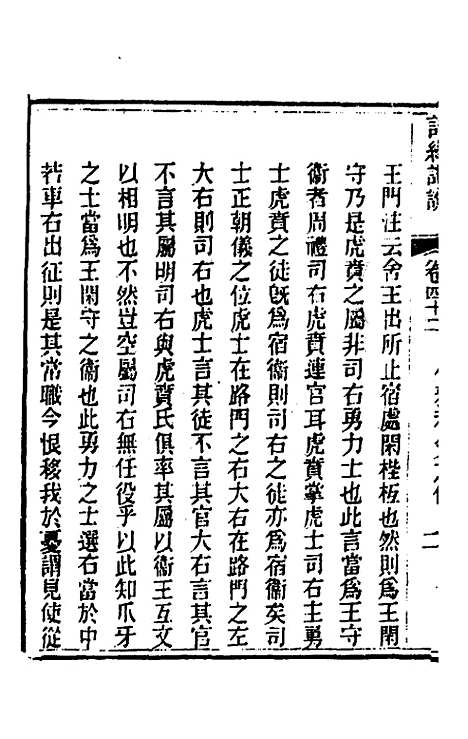 詩經詮義
卷四十二
二
王門注云舍王出所止宿處閑梐枑也然則爲王閑
守乃是虎賁之屬非司右勇力士也此言當爲王守
衛者周禮司右虎賁連官耳虎賁掌虎士司右主勇
士虎賁之徒旣爲宿衞則司右之徒亦爲宿衞矣司
士正朝儀之位虎士在路門之右大右在路門之左
大右則司右也虎士言其徒不言其官大右言其官
不言其屬明司右與虎賁氏俱率其屬以衞王互文
以相明也不然豈空屬司右無任役乎以此知爪牙
之士當爲王閑守之衞也此勇力之士選右當於中
若車右出征則是其常職今恨移我於憂謂見使從